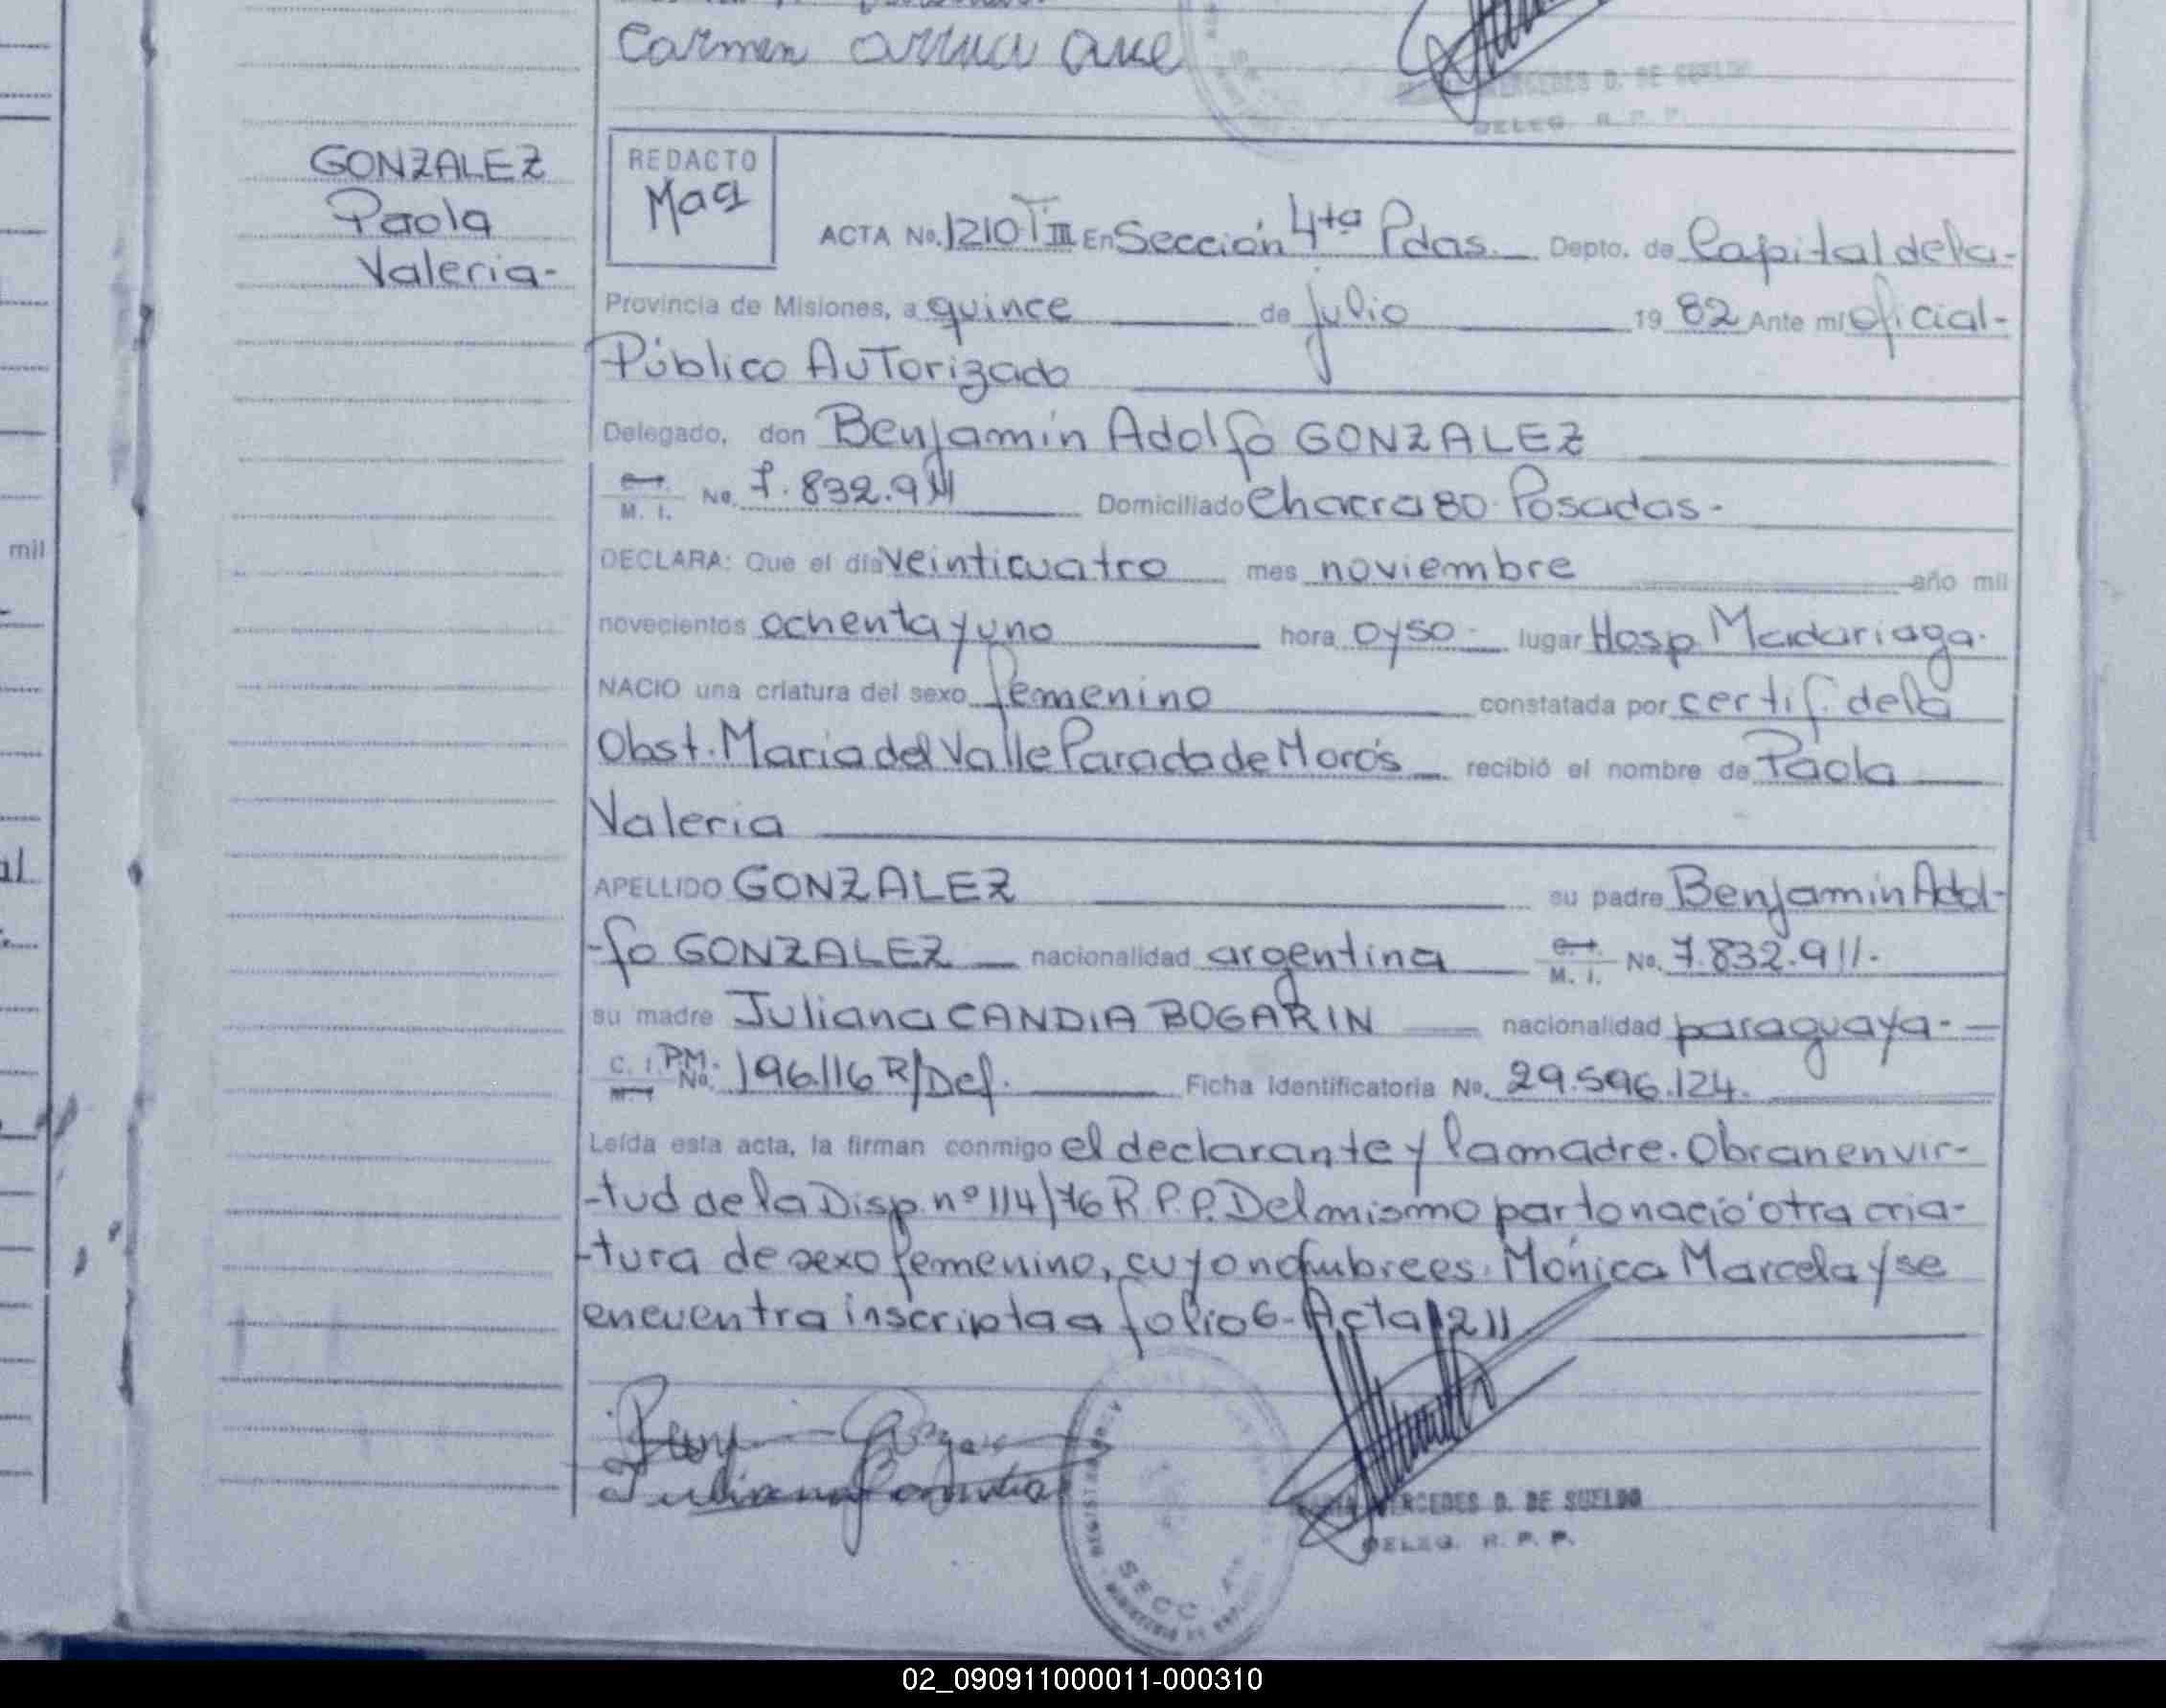 Carmen
MERCEDES D. DE SUELDO
DELEG. R. P. P.
GONZALEZ
Paola
Valeria-
REDACTO
Maq
ACTA No. 1210 T III En Sección 4ta Pdas. Depto. de Capital de la-
Provincia de Misiones, a quince de julio 19 82 Ante mi oficial-
Público Autorizado
Delegado, don Benjamín Adolfo GONZALEZ
M. I. No. 7.832.911 Domiciliado Chacra 80 Posadas-
DECLARA: Que el día veinticuatro mes noviembre año mil
novecientos ochenta y uno hora 0 y 50- lugar Hosp. Madariaga.
NACIO una criatura del sexo femenino constatada por certif. de la
Obst. Maria del Valle Parada de Morós recibió el nombre de Paola
Valeria
APELLIDO GONZALEZ su padre Benjamin Adol-
-fo GONZALEZ nacionalidad argentina M. I. No. 7.832.911.
su madre Juliana CANDIA BOGARIN nacionalidad paraguaya-
C. I. PM. No. 196.116 R/Def. Ficha Identificatoria No. 29.596.124.
Leída esta acta, la firman conmigo el declarante y la madre. Obran en vir-
-tud de la Disp. nº 114/76 R.P.P. Del mismo parto nació otra cria-
-tura de sexo femenino, cuyo nombre es: Mónica Marcela y se
encuentra inscripta a folio 6- Acta 1211
Juliana Candia
MERCEDES D. DE SUELDO
DELEG. R. P. P.
SECC. 4ta
mil
al
02_090911000011-000310